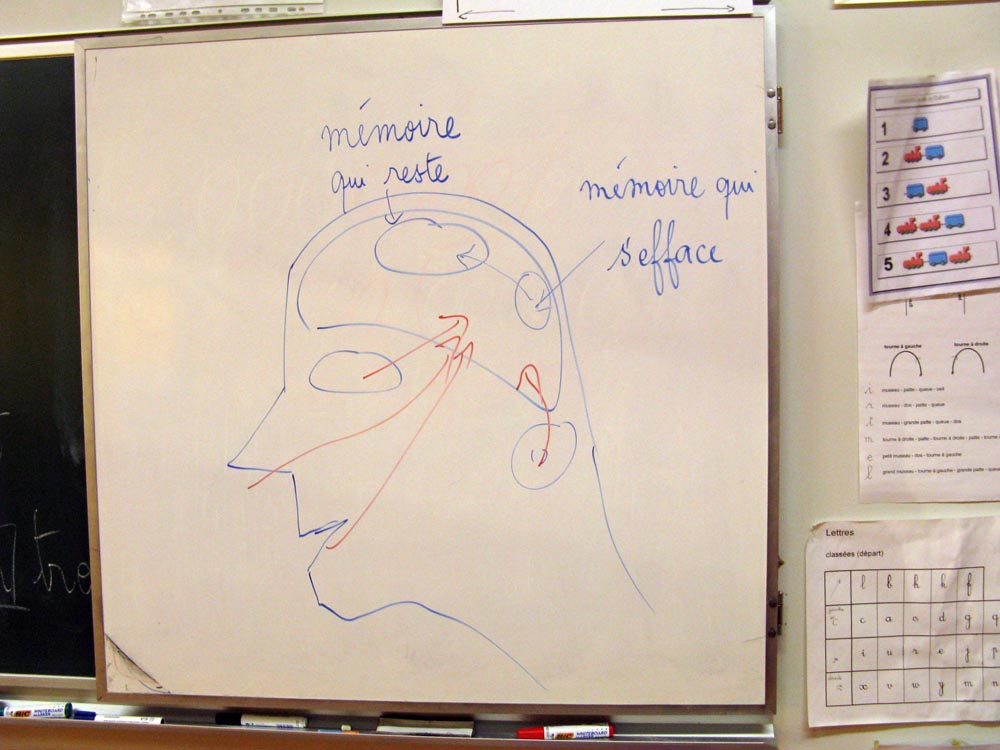 mémoire
qui reste
mémoire qui
s'efface
tro
1
2
3
4
5
tourne à gauche
tourne à droite
i museau - patte - queue - oeil
r museau - dos - patte - queue
t museau - grande patte - queue - dos
m tourne à droite - patte - tourne à droite - patte - tourne
e petit museau - dos - tourne à gauche
l grand museau - tourne à gauche - grande patte - queue
Lettres
classées (départ)
l b h k f
c a o d g q
i u r e j p
x v w y m n
BIC WHITEBOARD MARKER
BIC WHITEBOARD MARKER